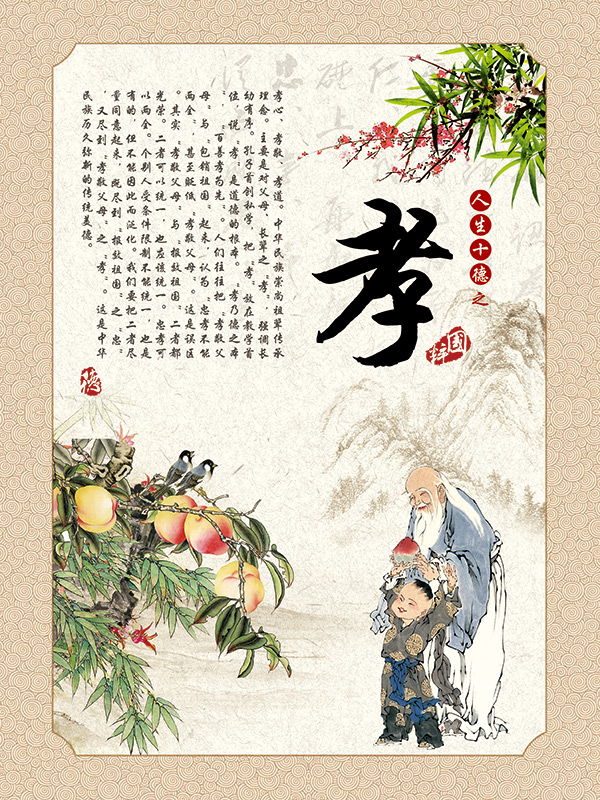 人生十德之
孝
国粹
孝心、孝敬、孝道。中华民族崇尚祖辈传承
理念。主要是对父母、长辈之“孝”。强调长
幼有序。孔子首创私学，把“孝”放在教学首
位，说“孝”是道德的根本。“孝乃德之本
”，“百善孝为先”。人们往往把“孝敬父
母”与“包销祖国”起来，认为“忠孝不能
两全”，甚至贬低“孝敬父母”。这是误区
。其实“孝敬父母”与“报效祖国”二者都
光荣。二者可以统一，也应该统一。忠孝可
以两全。个别人受条件限制不能统一，也是
有的，但不能因此而泛化。我们要把二者尽
量同意起来，既尽到“报效祖国”之“忠”
，又尽到“孝敬父母”之“孝”。这是中华
民族历久弥新的传统美德。
德